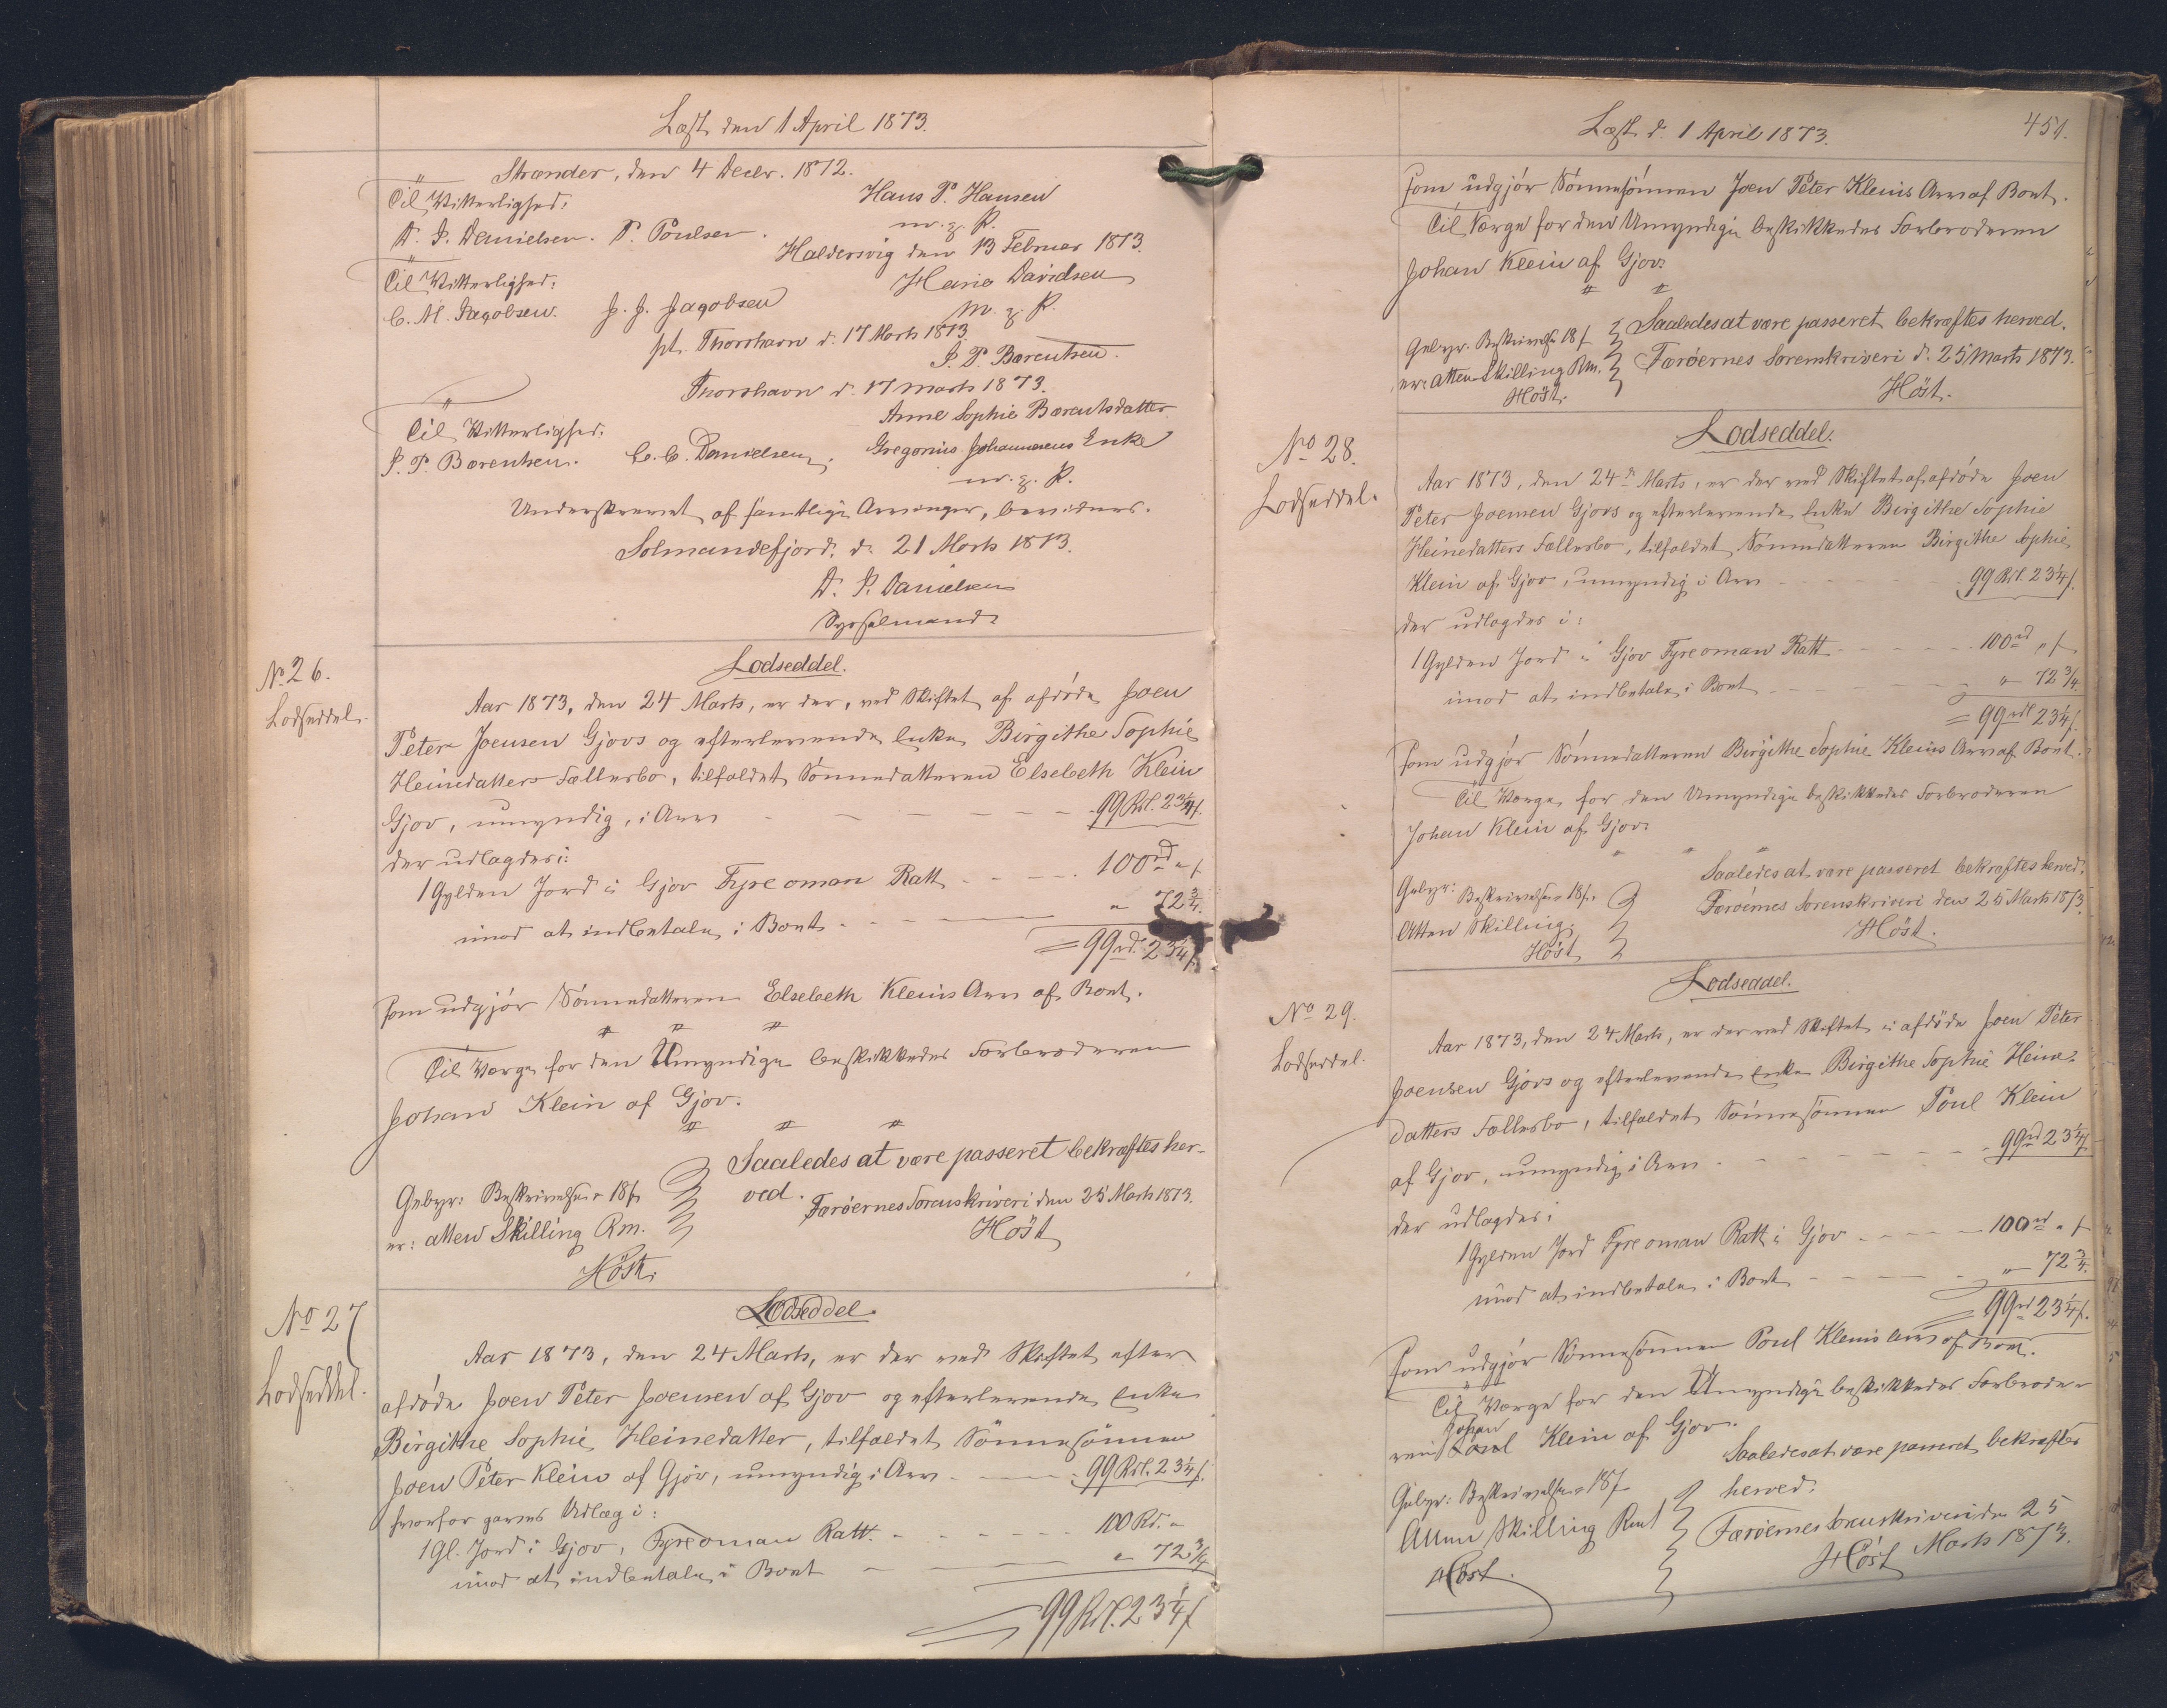 Læst den 1 April 1873.
Strender, den 4 Decbr. 1872.
Til Vitterlighed:
Hans P. Hansen
m. f. P.
D. P. Danielsen. P. Poulsen.
Haldersvig den 13 Februar 1873.
Til Vitterlighed:
Heine Davidsen
m. f. P.
C. M. Jagobsen. J. J. Jagobsen
pt. Thorshavn d. 17 Marts 1873.
J. P. Barentsen.
Thorshavn d. 17 Marts 1873.
Til Vitterlighed:
Anne Sophie Barentsdatter
J. P. Barentsen. C. C. Danielsen. Gregorius Johannesens Enke
m. f. P.
Underskrevet af samtlige Arvinger, bevidnes.
Solmundefjord, d. 21 Marts 1873.
D. P. Danielsen
Sysselmand
No 26.
Lodseddel.
Lodseddel.
Aar 1873, den 24 Marts, er der, ved Skiftet af afdøde Joen
Peter Joensen Gjovs og efterlevende Enke Birgithe Sophie
Heinedatters Fællesbo, tilfaldet Sønnedatteren Elsebeth Klein
Gjov, umyndig, i Arv - - - - - 99 Rd. 23 1/4 f.
der udlagdes i:
1 Gylden Jord i Gjov Fyreoman Ratt - - - - 100 rd " f
imod at indbetale i Boet - - " 72 3/4.
= 99 rd. 23 1/4 f.
som udgjør Sønnedatteren Elsebeth Kleins Arv af Boet.
" " "
Til Værge for den Umyndige beskikkedes Farbroderen
Johan Klein af Gjov.
" " "
Saaledes at være passeret bekræftes her-
ved.
Gebyr: Beskrivelse 18 f
Færøernes Sorenskriveri den 25 Marts 1873.
er: atten Skilling Rm.
Høst
Høst.
No 27
Lodseddel.
Lodseddel.
Aar 1873, den 24 Marts, er der ved Skiftet efter
afdøde Joen Peter Joensen af Gjov og efterlevende Enke
Birgithe Sophie Heinedatter, tilfaldet Sønnesønnen
Joen Peter Klein af Gjov, umyndig i Arv - - - 99 Rd. 23 1/4 f.
hvorfor gaves Udlæg i:
1 Gl. Jord i Gjov, Fyreoman Ratt. - - - - - 100 Rd. "
imod at indbetale i Boet - - - " 72 3/4
= 99 Rd. 23 1/4 f
Læst d. 1 April 1873.
451.
som udgjør Sønnesønnen Joen Peter Kleins Arv af Boet.
Til Værge for den Umyndige beskikkedes Farbroderen
Johan Klein af Gjov.
" "
Saaledes at være passeret bekræftes herved.
Gebyr. Beskrivelse 18 f
Færøernes Sorenskriveri d. 25 Marts 1873.
er: atten Skilling Rm.
Høst.
Høst.
No 28.
Lodseddel.
Lodseddel.
Aar 1873, den 24 de Marts, er der ved Skiftet af afdøde Joen
Peter Joensen Gjovs og efterlevende Enke Birgithe Sophie
Heinedatters Fællesbo, tilfaldet Sønnedatteren Birgithe Sophie
Klein af Gjov, umyndig i Arv - - - - 99 Rd. 23 1/4 f.
der udlagdes i:
1 Gylden Jord i Gjov Fyreoman Ratt - - - - - 100 rd " f
imod at indbetale i Boet - - - - - " 72 3/4.
= 99 rd 23 1/4 f.
som udgjør Sønnedatteren Birgithe Sophie Kleins Arv af Boet.
Til Værge for den Umyndige beskikkedes Farbroderen
Johan Klein af Gjov.
" " "
Saaledes at være passeret bekræftes herved.
Gebyr: Beskrivelse 18 f.
Færøernes Sorenskriveri den 25 Marts 1873.
Atten Skilling.
Høst.
Høst
No 29.
Lodseddel.
Lodseddel.
Aar 1873, den 24 Marts, er der ved Skiftet i afdøde Joen Peter
Joensen Gjovs og efterlevende Enke Birgithe Sophie Heine-
datters Fællesbo, tilfaldet Sønnesønnen Poul Klein
af Gjov, umyndig i Arv - - - - - - 99 rd 23 1/4 f
der udlagdes i
1 Gylden Jord Fyreoman Ratt i Gjov - - - - 100 rd " f
imod at indbetale i Boet - - - - " 72 3/4.
= 99 rd 23 1/4 f.
som udgjør Sønnesønnen Poul Kleins Arv af Boet.
Til Værge for den Umyndige beskikkedes Farbrode-
Johan
ren Poul Klein af Gjov.
Saaledes at være passeret bekræftes
Gebyr: Beskrivelse 18 f
herved.
Atten Skilling Rm
Færøernes Sorenskriveri den 25
Marts 1873.
Høst.
Høst